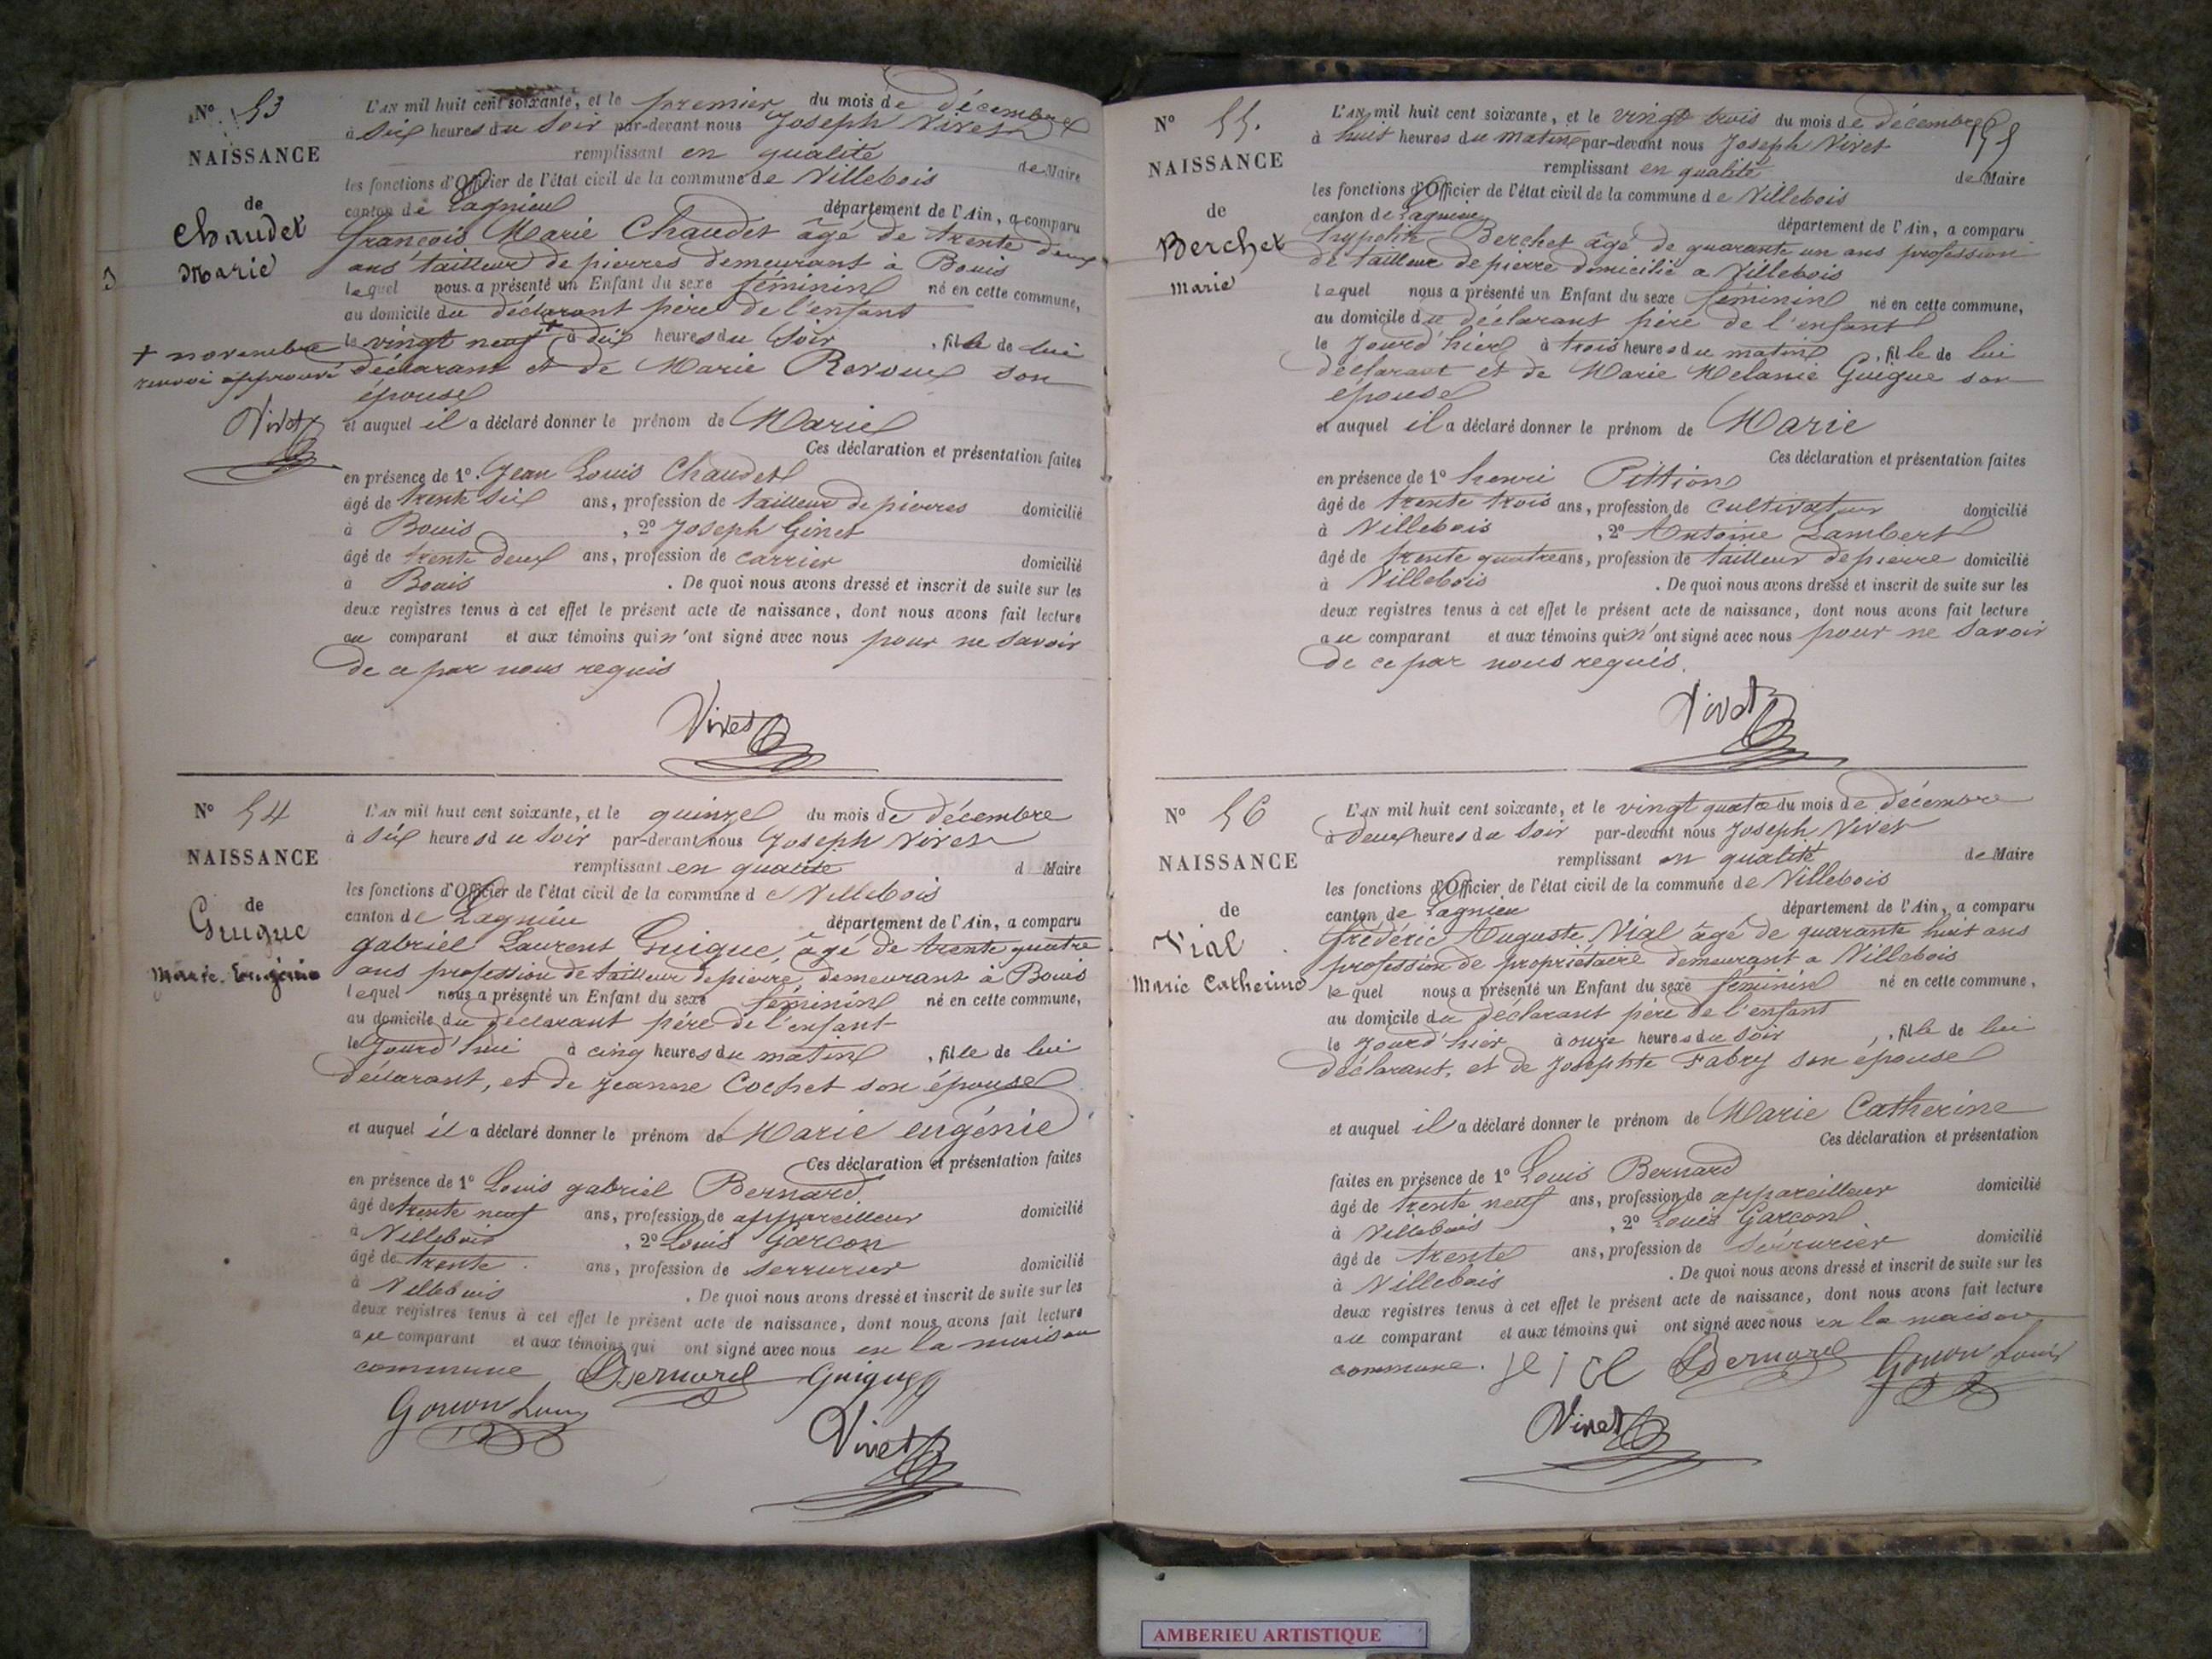 N° 53
NAISSANCE
de
Chaudet
Marie
L'AN mil huit cent soixante, et le premier du mois de décembre
à six heures du soir par-devant nous Joseph Vivet
remplissant en qualité de Maire
les fonctions d'Officier de l'état civil de la commune de Villebois
canton de Lagnieu département de l'Ain, a comparu
françois Marie Chaudet âgé de trente deux
ans tailleur de pierres demeurant à Bouis
lequel nous a présenté un Enfant du sexe féminin né en cette commune,
au domicile du déclarant père de l'enfant
le vingt neuf + à dix heures du soir , fille de lui
+ novembre
renvoi approuvé
Vivet
déclarant et de Marie Revoux son
épouse
et auquel il a déclaré donner le prénom de Marie
Ces déclaration et présentation faites
en présence de 1° Jean Louis Chaudet
âgé de trente six ans, profession de tailleur de pierres domicilié
à Bouis , 2° Joseph Ginet
âgé de trente deux ans, profession de carrier domicilié
à Bouis . De quoi nous avons dressé et inscrit de suite sur les
deux registres tenus à cet effet le présent acte de naissance, dont nous avons fait lecture
au comparant et aux témoins qui n'ont signé avec nous pour ne savoir
de ce par nous requis
Vivet
N° 54
NAISSANCE
de
Guigue
Marie Eugénie
L'AN mil huit cent soixante, et le quinze du mois de décembre
à six heures du soir par-devant nous Joseph Vivet
remplissant en qualité d Maire
les fonctions d'Officier de l'état civil de la commune de Villebois
canton de Lagnieu département de l'Ain, a comparu
gabriel Laurent Guigue, âgé de trente quatre
ans profession de tailleur de pierre, demeurant à Bouis
lequel nous a présenté un Enfant du sexe féminin né en cette commune,
au domicile du déclarant père de l'enfant
le Jourd'hui à cinq heures du matin , fille de lui
déclarant, et de Jeanne Cochet son épouse
et auquel il a déclaré donner le prénom de Marie eugénie
Ces déclaration et présentation faites
en présence de 1° Louis gabriel Bernard
âgé de trente neuf ans, profession de appareilleur domicilié
à Villebois , 2° Louis Garcon
âgé de trente ans, profession de serrurier domicilié
à Villebois . De quoi nous avons dressé et inscrit de suite sur les
deux registres tenus à cet effet le présent acte de naissance, dont nous avons fait lecture
au comparant et aux témoins qui ont signé avec nous en la maison
commune Bernard Guigue
Vivet
N° 55.
NAISSANCE
de
Berchet
Marie
L'AN mil huit cent soixante, et le vingt trois du mois de décembre
à huit heures du matin par-devant nous Joseph Vivet
remplissant en qualité de Maire
les fonctions d'Officier de l'état civil de la commune de Villebois
canton de Lagnieu département de l'Ain, a comparu
hypolite Berchet âgé de quarante un ans profession
de tailleur de pierre domicilié a Villebois
lequel nous a présenté un Enfant du sexe féminin né en cette commune,
au domicile du déclarant père de l'enfant
le Jourd'hier à trois heures du matin , fille de lui
déclarant et de Marie Melanie Guigue son
épouse
et auquel il a déclaré donner le prénom de Marie
Ces déclaration et présentation faites
en présence de 1° henri Pittion
âgé de trente trois ans, profession de cultivateur domicilié
à Villebois , 2° Antoine Lambert
âgé de trente quatre ans, profession de tailleur de pierre domicilié
à Villebois . De quoi nous avons dressé et inscrit de suite sur les
deux registres tenus à cet effet le présent acte de naissance, dont nous avons fait lecture
au comparant et aux témoins qui n'ont signé avec nous pour ne savoir
de ce par nous requis.
Vivet
N° 56
NAISSANCE
de
Vial
Marie Catherine
L'AN mil huit cent soixante, et le vingt quatre du mois de décembre
à deux heures du soir par-devant nous Joseph Vivet
remplissant en qualité de Maire
les fonctions d'Officier de l'état civil de la commune de Villebois
canton de Lagnieu département de l'Ain, a comparu
frédéric Auguste Vial âgé de quarante huit ans
profession de propriétaire demeurant a Villebois
lequel nous a présenté un Enfant du sexe féminin né en cette commune,
au domicile du déclarant père de l'enfant
le Jourd'hier à onze heures du soir , fille de lui
déclarant, et de Josephte Fabry son épouse
et auquel il a déclaré donner le prénom de Marie Catherine
Ces déclaration et présentation
faites en présence de 1° Louis Bernard
âgé de trente neuf ans, profession de appareilleur domicilié
à Villebois , 2° Louis Garcon
âgé de trente ans, profession de serrurier domicilié
à Villebois . De quoi nous avons dressé et inscrit de suite sur les
deux registres tenus à cet effet le présent acte de naissance, dont nous avons fait lecture
au comparant et aux témoins qui ont signé avec nous en la maison
commune. Bernard Louis
Vivet
AMBERIEU ARTISTIQUE